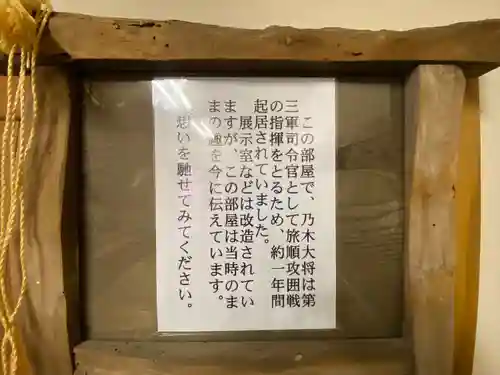 この部屋で、乃木大将は第
三軍司令官として旅順攻囲戦
の指揮をとるため、約一年間
起居されていました。
展示室などは改造されてい
ますが、この部屋は当時のま
まの趣を今に伝えています。
思いを馳せてみてください。